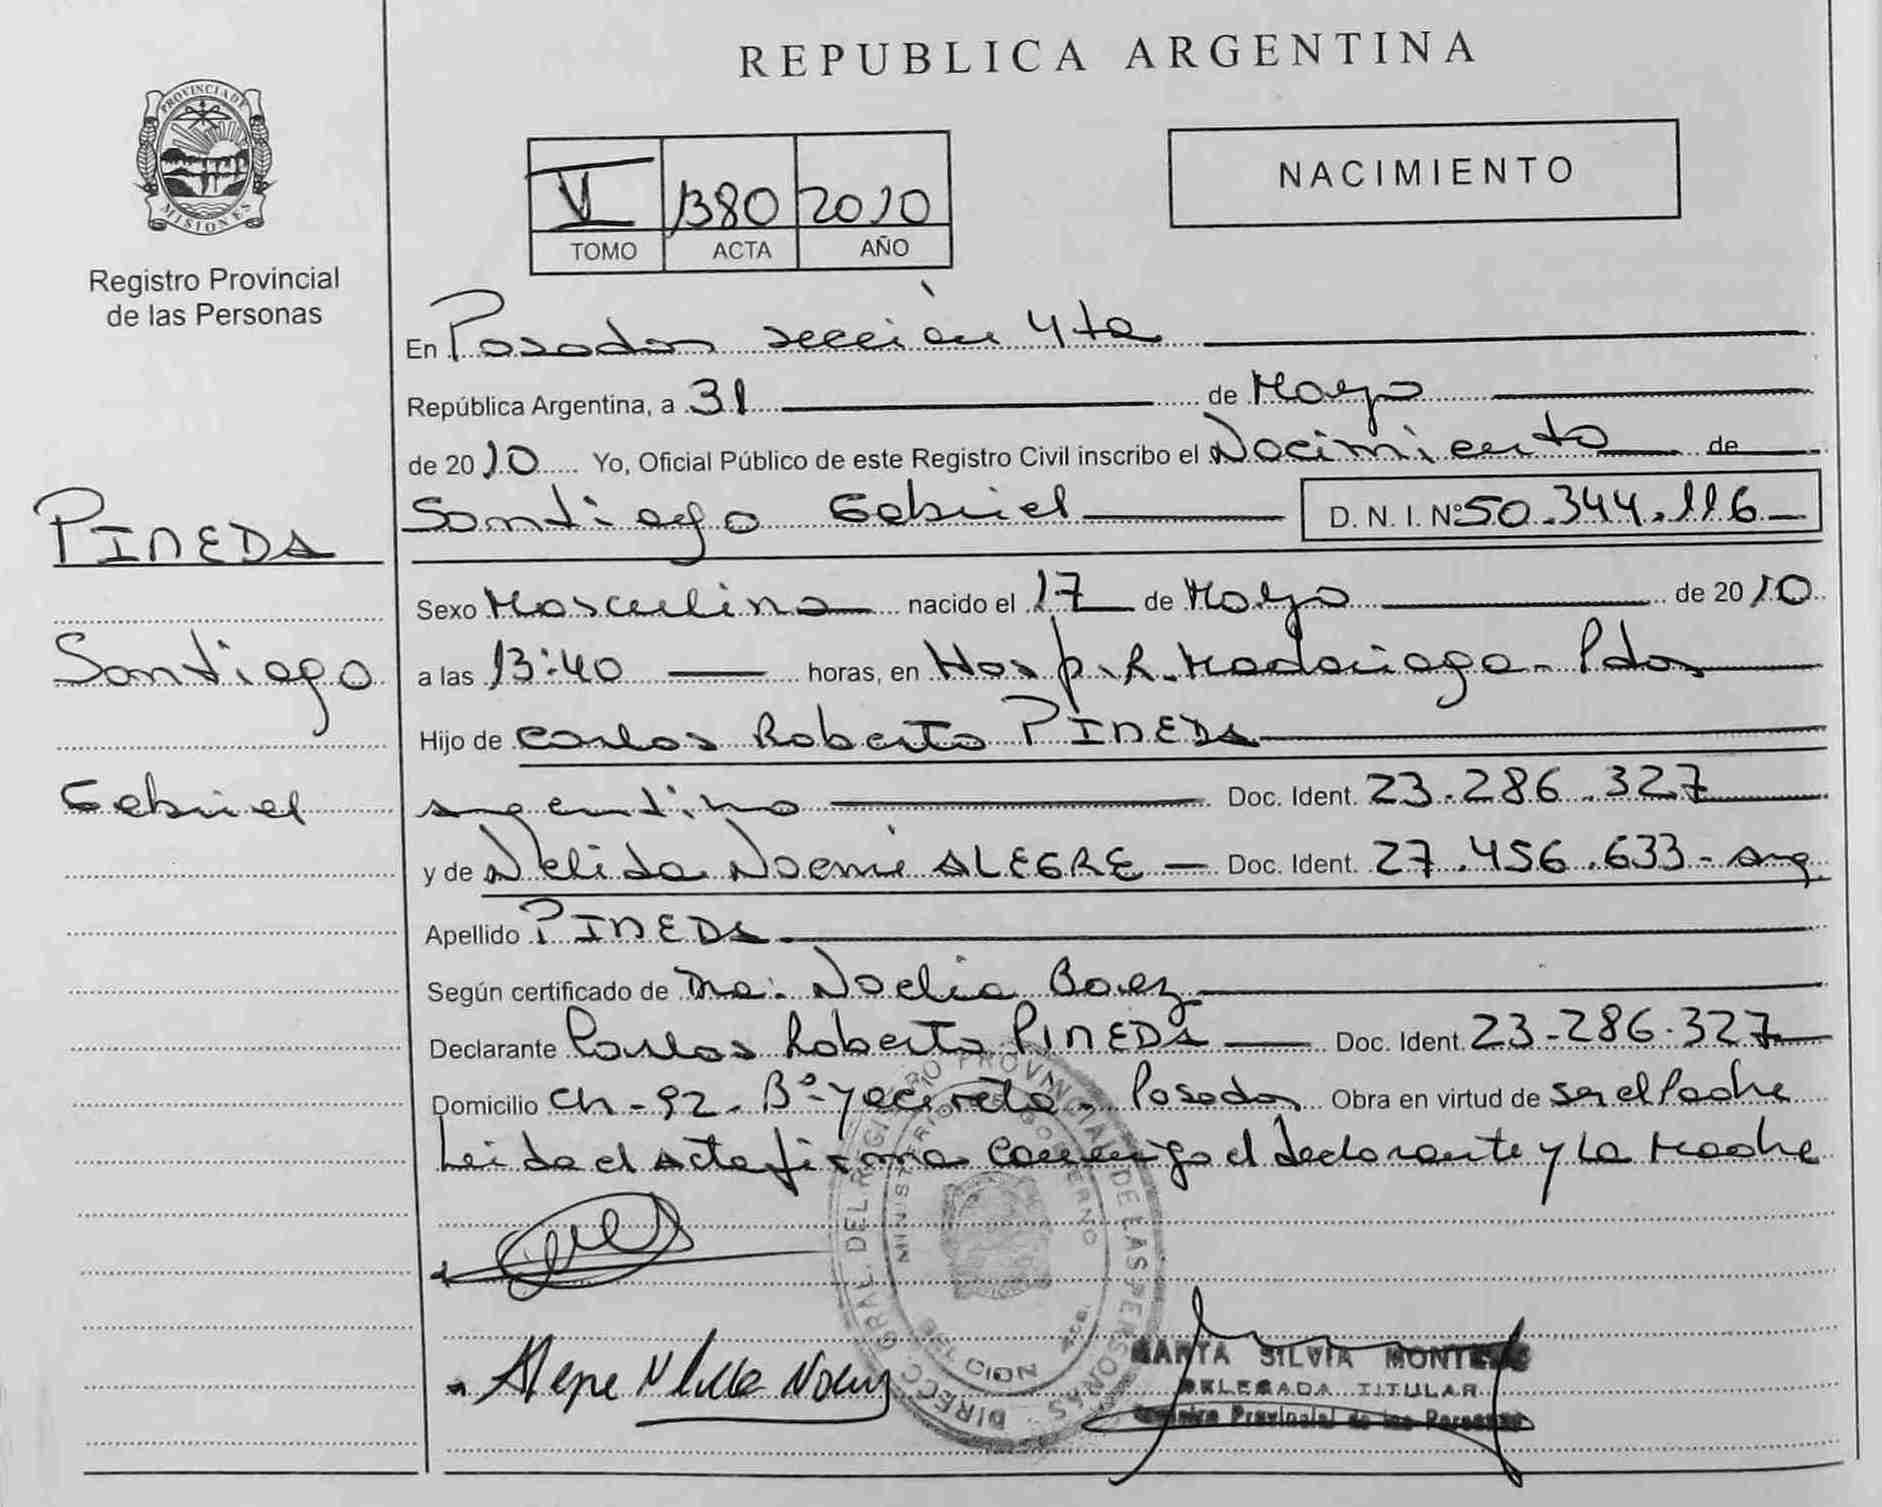 REPUBLICA ARGENTINA
PROVINCIA DE
MISIONES
Registro Provincial
de las Personas
NACIMIENTO
V 1380 2010
TOMO ACTA AÑO
En Posadas sección 4ta
República Argentina, a 31 de Mayo
de 2010 Yo, Oficial Público de este Registro Civil inscribo el Nacimiento de
Santiago Gabriel D. N. I. Nº 50.344.116
Sexo Masculino nacido el 17 de Mayo de 2010
a las 13:40 horas, en Hosp. R. Madariaga - Pdas
Hijo de Carlos Roberto PINEDA
argentino Doc. Ident. 23.286.327
y de Nelida Noemi ALEGRE Doc. Ident. 27.456.633 - arg
Apellido PINEDA
Según certificado de Noelia Baez
Declarante Carlos Roberto PINEDA Doc. Ident. 23-286-327
Domicilio Ch - 92 - Bº Yacireta - Posadas Obra en virtud de ser el Padre
Leida el Acta firma conmigo el declarante y La Madre
PINEDA
Santiago
Gabriel
DIRECC. GRAL. DEL REGISTRO PROVINCIAL DE LAS PERSONAS
MINISTERIO DE GOBIERNO
MARTA SILVIA
DELEGADA TITULAR
Provincial de las Personas